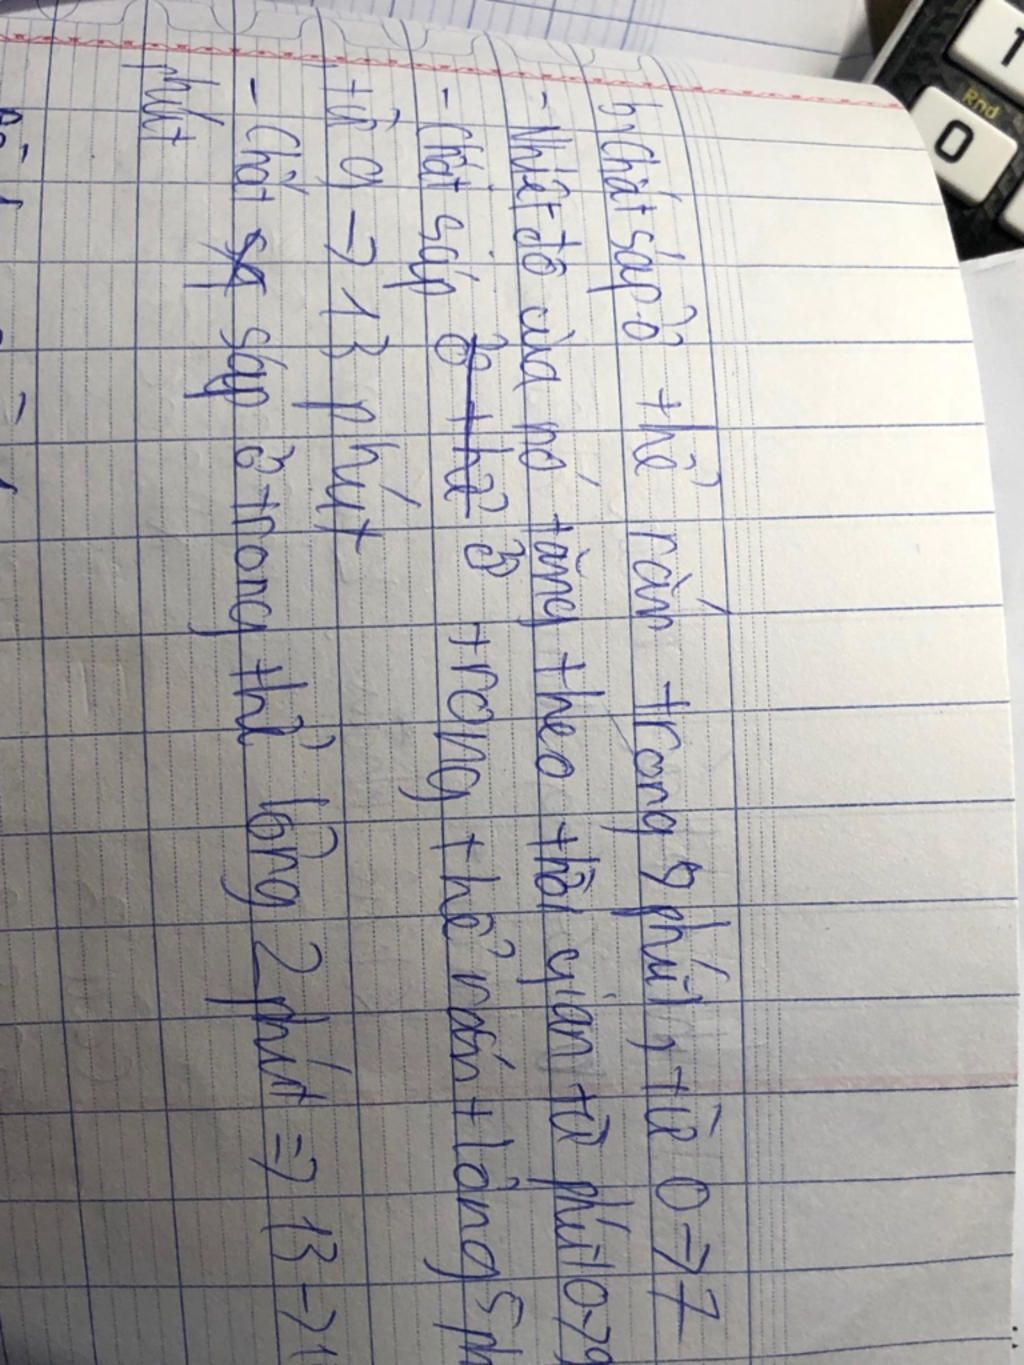 b, Chất sáp ở thể rắn trong 9 phút, từ 0 → 7
- Nhiệt độ của nó tăng theo thời gian từ phút 0 → 9
- Chất sáp ở thể ở trong thể rắn + lỏng 5 ph
từ 9 → 13 phút
- Chất sáp ở trong thể lỏng 2 phút => 13 → 1
phút
T
Rnd
0